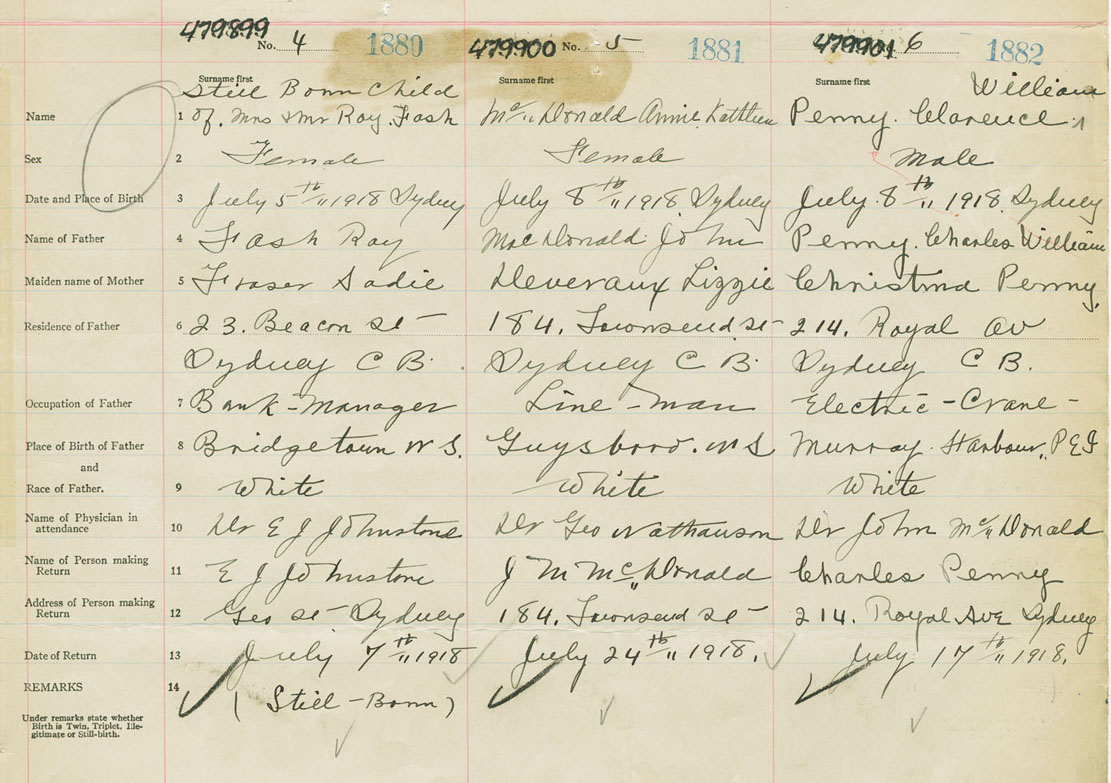 479899 479900 479901
No. 4 1880 No. 5 1881 6 1882
Surname first Surname first Surname first
Still Born Child William
Name 1 of. Mrs & Mr Roy. Fash Mc Donald Annie Kathleen Penny. Clarence
Sex 2 Female Female Male
Date and Place of Birth 3 July 5th 1918 Sydney July 8th 1918. Sydney July. 8th 1918. Sydney
Name of Father 4 Fash Roy MacDonald John Penny. Charles William
Maiden name of Mother 5 Fraser Sadie Deveraux Lizzie Christina Penny.
Residence of Father 6 23. Beacon St 184. Townsend St 214. Royal Av
Sydney C B. Sydney C B. Sydney C B.
Occupation of Father 7 Bank-Manager Line-man Electric-Crane-
Place of Birth of Father 8 Bridgetown N S. Guysboro. N S Murray. Harbour, P E I
and
Race of Father. 9 White White White
Name of Physician in attendance 10 Dr E J Johnstone Dr Geo Nathanson Dr John Mc Donald
Name of Person making Return 11 E J Johnstone J M Mc Donald Charles Penny
Address of Person making Return 12 Geo St Sydney 184. Townsend St 214. Royal Ave Sydney
Date of Return 13 July 7th 1918 July 24th 1918. July 17th 1918.
REMARKS 14 (Still-Born)
Under remarks state whether
Birth is Twin, Triplet, Ille-
gitimate or Still-birth.